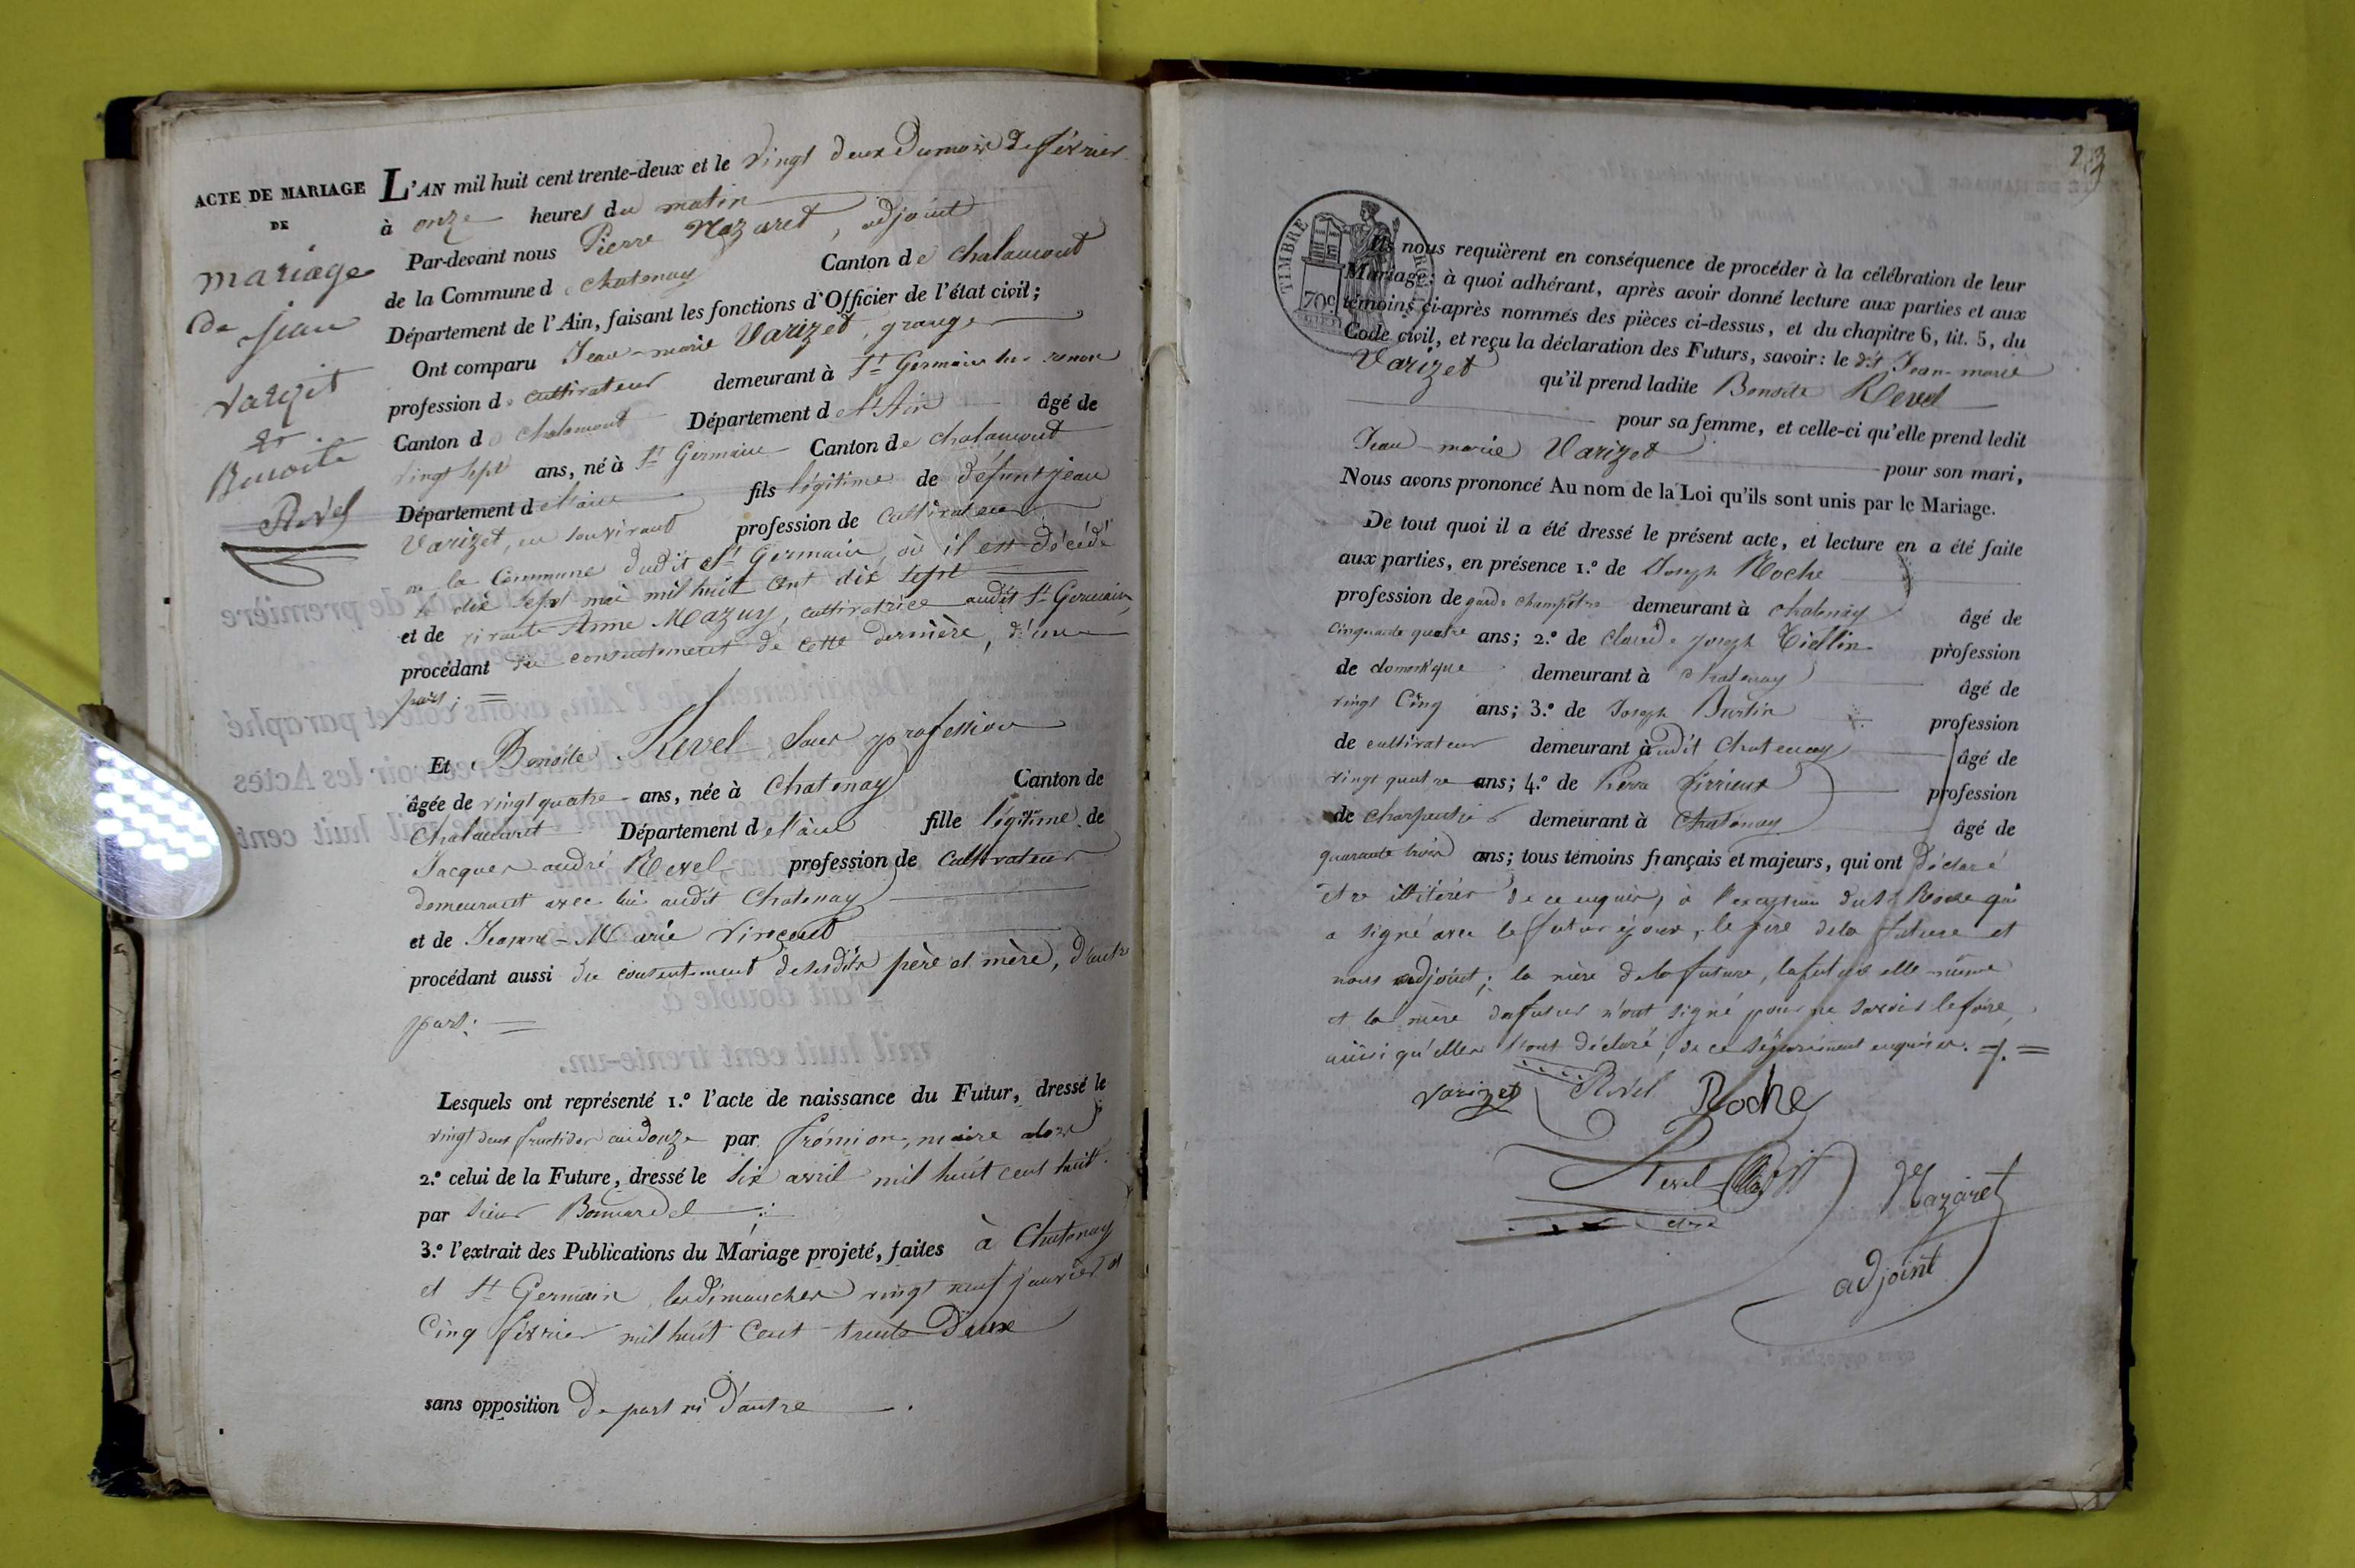 ACTE DE MARIAGE
DE
mariage
de jean
Varizit
et
Benoite
Revel
L'AN mil huit cent trente-deux et le vingt deux du mois de février
à onze heures du matin
Par-devant nous Pierre Nazaret, adjoint
de la Commune de chatenay Canton de chalamont
Département de l'Ain, faisant les fonctions d'Officier de l'état civil;
Ont comparu Jean-marie Varizet, granger
profession de cultivateur demeurant à St Germain sur renon
Canton de chalamont Département de l'Ain âgé de
vingt sept ans, né à St Germain Canton de chalamont
Département de l'ain fils légitime de défunt jean
Varizet, en son vivant profession de cultivateur
en la Commune dudit St Germain, où il est décédé
le dix sept mai mil huit cent dix sept
et de vivante Anne Mazuy, cultivatrice audit St Germain,
procédant du consentement de cette dernière, d'une
part;
Et Benoite Revel sans profession
âgée de vingt quatre ans, née à Chatenay Canton de
Chalamont Département de l'ain fille légitime de
Jacques andré Revel, profession de cultivateur
demeurant avec lui audit Chatenay
et de Jeanne-Marie Vincent
procédant aussi du consentement de sesdits père et mère, d'autre
part.
Lesquels ont représenté 1.º l'acte de naissance du Futur, dressé le
vingt deux fructidor an douze par frémion, maire alors
2.º celui de la Future, dressé le six avril mil huit cent huit
par sieur Bonnardel
3.º l'extrait des Publications du Mariage projeté, faites à Chatenay
et St Germain, les dimanches vingt neuf janvier et
Cinq février mil huit Cent trente Deux
sans opposition de part ni d'autre.
23
TIMBRE ROYAL
70c
Ils nous requièrent en conséquence de procéder à la célébration de leur
Mariage; à quoi adhérant, après avoir donné lecture aux parties et aux
témoins ci-après nommés des pièces ci-dessus, et du chapitre 6, tit. 5, du
Code civil, et reçu la déclaration des Futurs, savoir: le dit Jean-marie
Varizet qu'il prend ladite Benoite Revel
pour sa femme, et celle-ci qu'elle prend ledit
Jean-marie Varizet pour son mari,
Nous avons prononcé Au nom de la Loi qu'ils sont unis par le Mariage.
De tout quoi il a été dressé le présent acte, et lecture en a été faite
aux parties, en présence 1.º de Joseph Roche
profession de garde champêtre demeurant à chatenay âgé de
cinquante quatre ans; 2.º de claude joseph Tiollin profession
de domestique demeurant à chatenay âgé de
vingt Cinq ans; 3.º de Joseph Burtin profession
de cultivateur demeurant audit Chatenay âgé de
vingt quatre ans; 4.º de Pierre Perrieux profession
de charpentier demeurant à Chatenay âgé de
quarante trois ans; tous témoins français et majeurs, qui ont déclaré
être illitérés de ce enquis, à l'exception dudt Roche qui
a signé avec le futur époux, le père de la future et
nous adjoint; la mère de la future, la future elle-même
et la mère du futur n'ont signé pour ne savoir le faire,
ainsi qu'elles l'ont déclaré, de ce séparément enquises.
Varizet Revel Roche
Revel
Nazaret
adjoint